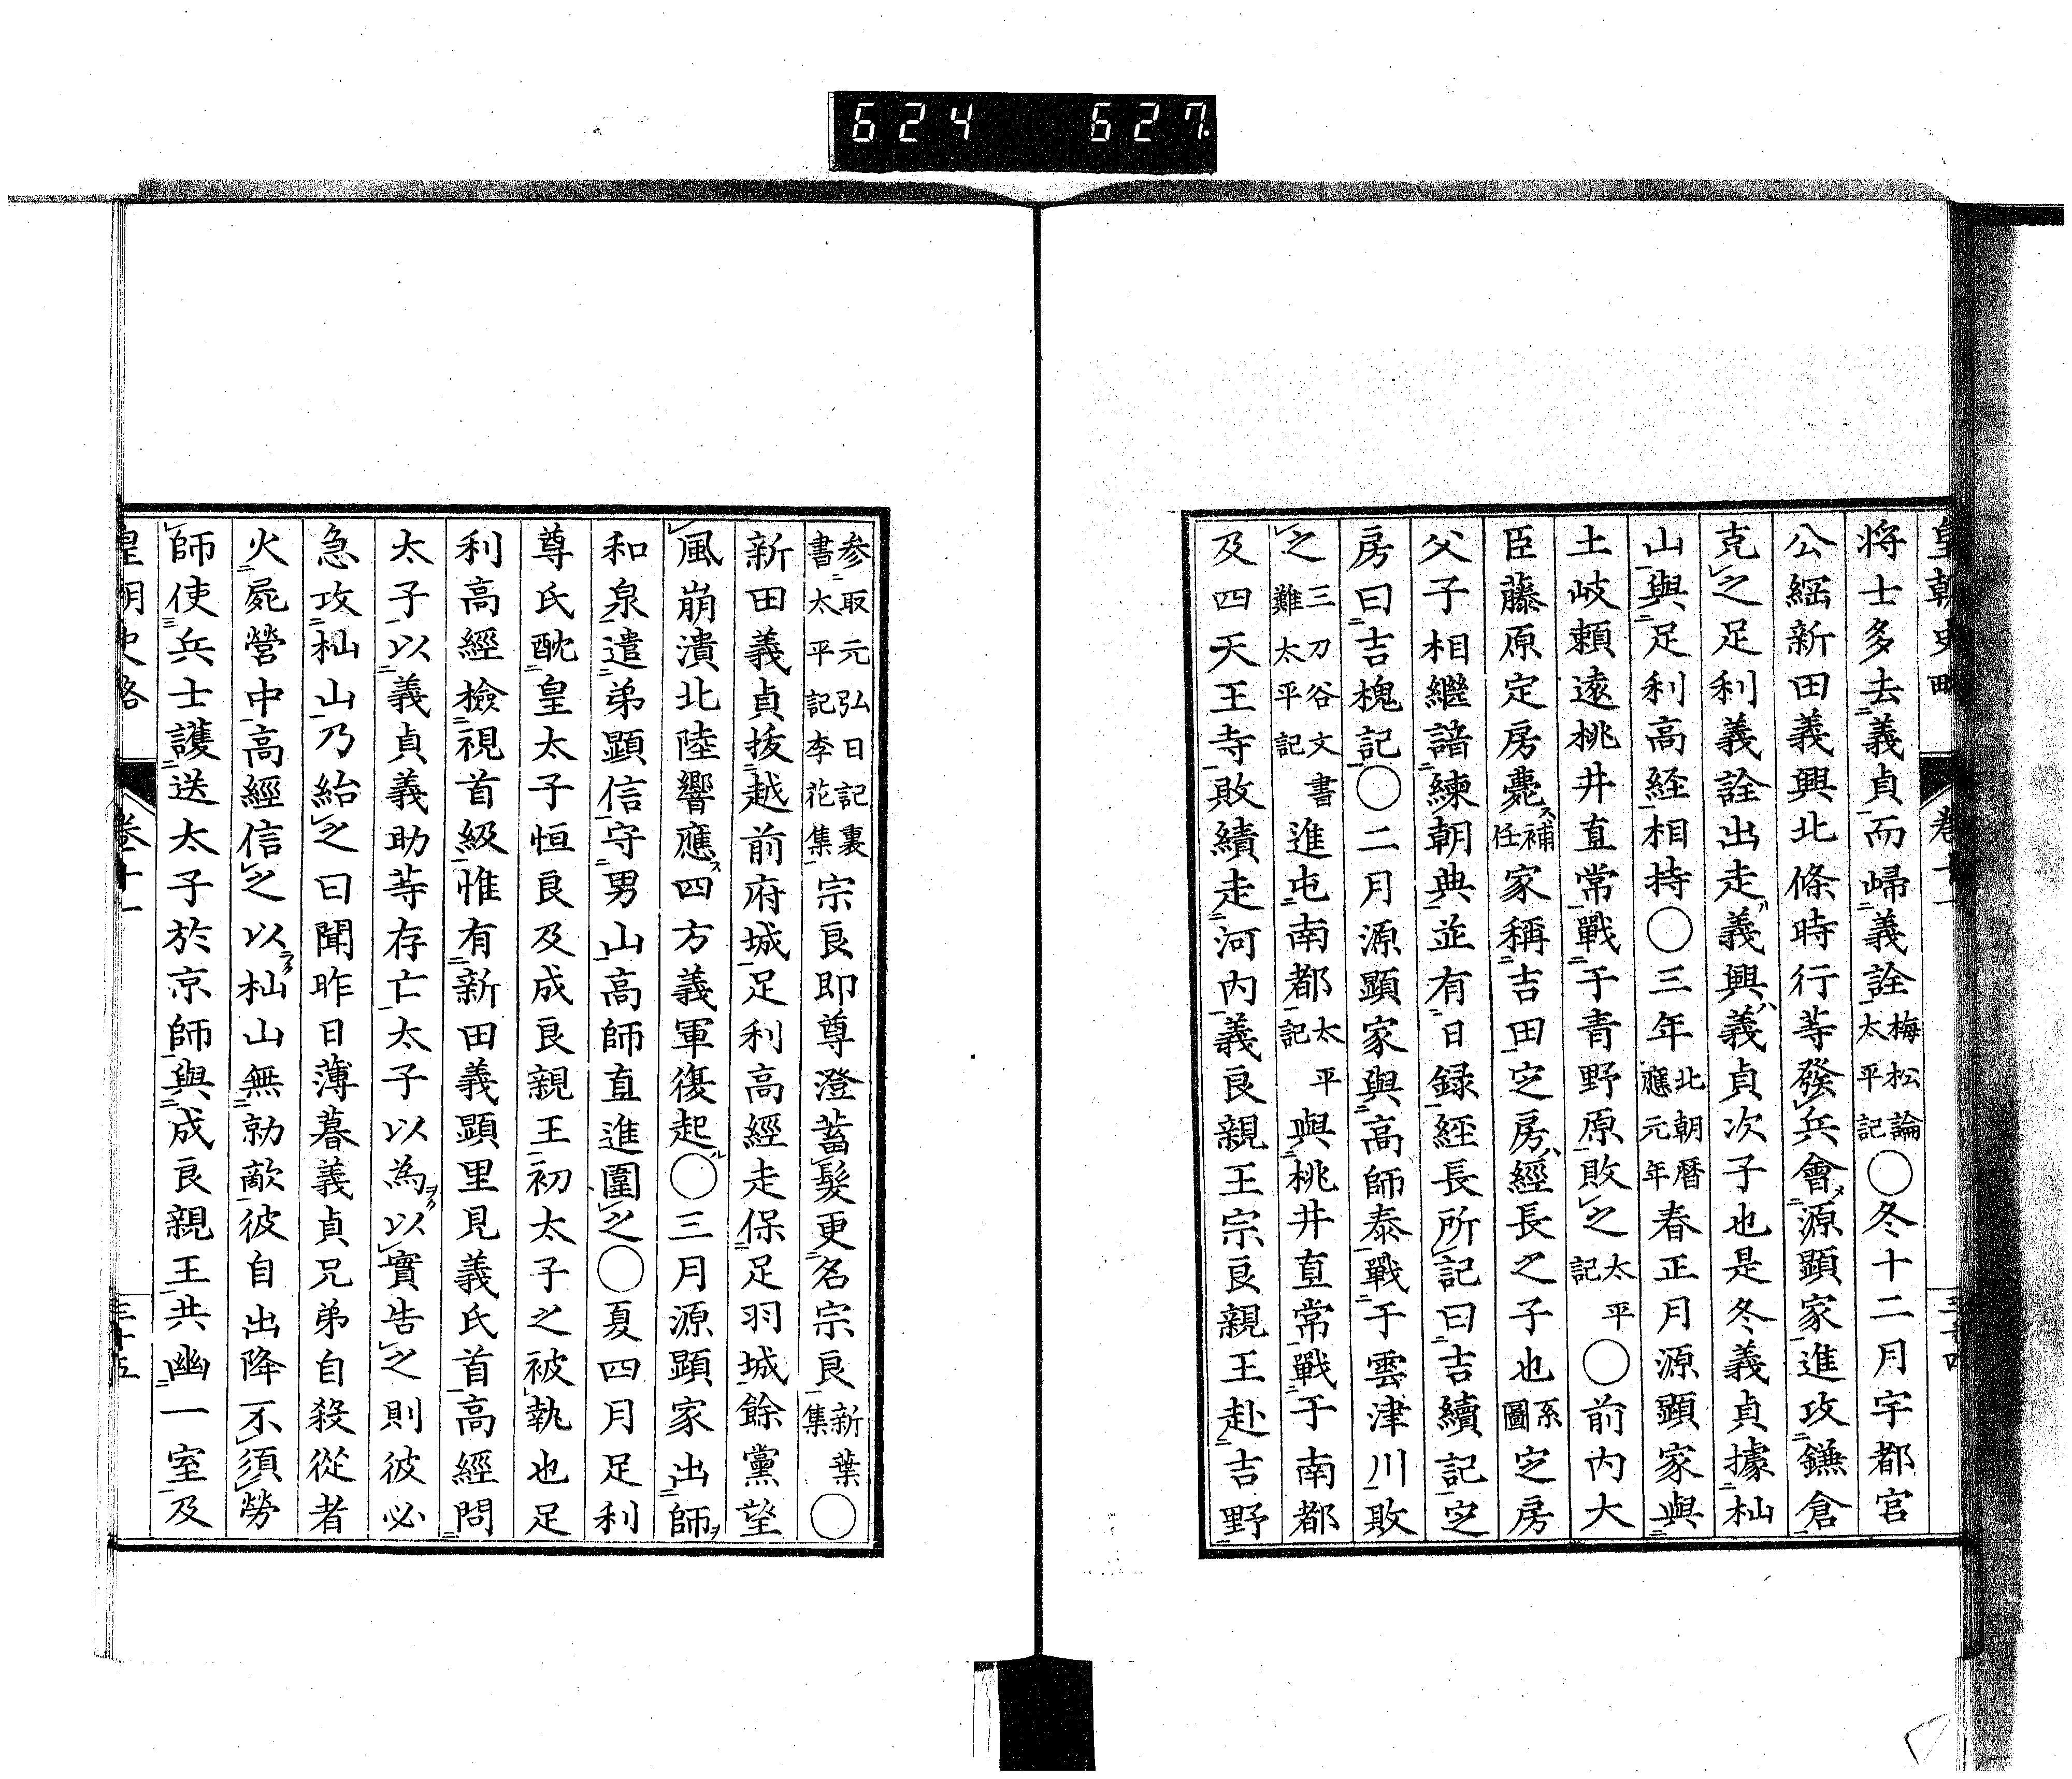 624 627
皇朝史略 卷十一 三十四
將士多去義貞而歸義詮梅松論太平記〇冬十二月宇都宮
公綱新田義興北條時行等發兵會源顯家進攻鎌倉
克之足利義詮出走義興義貞次子也是冬義貞據杣
山與足利高経相持〇三年北朝曆應元年春正月源顯家與
土岐頼遠桃井直常戰于青野原敗之太平記〇前内大
臣藤原定房薨補任家稱吉田定房經長之子也系圖定房
父子相繼諳練朝典並有日録経長所記曰吉續記定
房曰吉槐記〇二月源顯家與高師泰戰于雲津川敗
之三刀谷文書難太平記進屯南都太平記與桃井直常戰于南都
及四天王寺敗績走河内義良親王宗良親王赴吉野
参取元弘日記裏書太平記李花集宗良即尊澄蓄髮更名宗良新葉集〇
新田義貞拔越前府城足利高經走保足羽城餘黨望
風崩潰北陸響應ス四方義軍復起〇三月源顯家出師ヲ
和泉遣弟顯信守男山高師直進圍之〇夏四月足利
尊氏酖皇太子恒良及成良親王初太子之被執也足
利高經檢視首級惟有新田義顯里見義氏首高經問
太子以義貞義助等存亡太子以為以實告之則彼必
急攻杣山乃紿之曰聞昨日薄暮義貞兄弟自殺從者
火屍營中高經信之以杣山無勍敵彼自出降不須勞
師使兵士護送太子於京師與成良親王共幽一室及
皇朝史略 卷十一 三十五